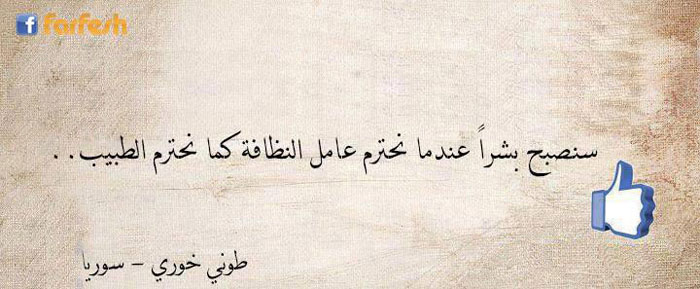 f farfesh
سنصبح بشراً عندما نحترم عامل النظافة كما نحترم الطبيب. .
طوني خوري - سوريا